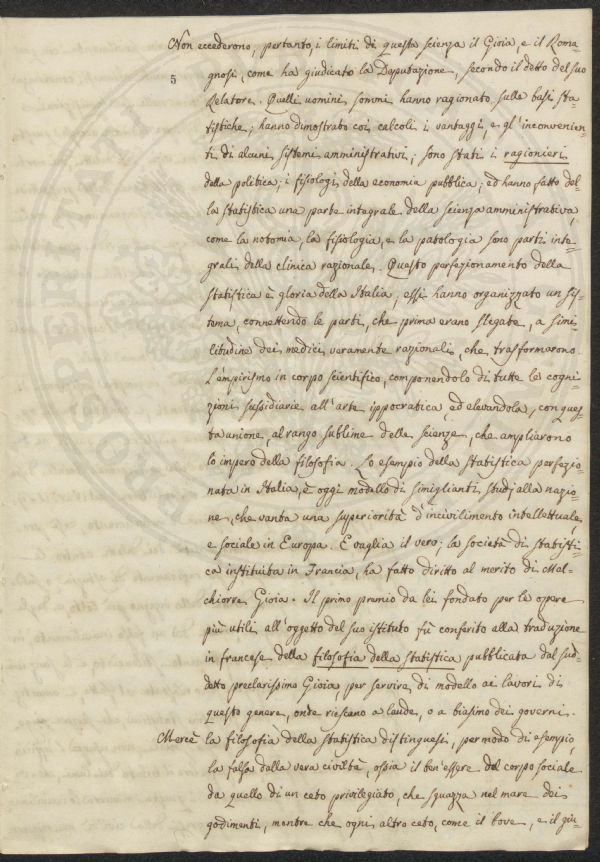 Non eccederono, pertanto, i limiti di questa scienza il Gioia, e il Roma=
5
gnosi, come ha giudicato la Deputazione, secondo il detto del suo
Relatore. Quelli uomini sommi hanno ragionato sulle basi sta=
tistiche; hanno dimostrato coi calcoli i vantaggi, e gl'inconvenien=
ti di alcuni sistemi amministrativi; sono stati i ragionieri
della politica; i fisiologi della economia pubblica; ed hanno fatto del=
la statistica una parte integrale della scienza amministrativa,
come la notomia, la fisiologia, e la patologia sono parti inte=
grali della clinica razionale. Questo perfezionamento della
statistica è gloria della Italia; essi hanno organizzato un sis=
tema, connettendo le parti, che prima erano slegate, a simi
litudine dei medici veramente razionali, che trasformarono
l'empirismo in corpo scientifico, componendolo di tutte le cogni=
zioni sussidiarie all'arte ippocratica, ed elevandola, con ques=
ta unione, al rango sublime delle scienze, che ampliarono
lo impero della filosofia. Lo esempio della statistica perfezio=
nata in Italia, è oggi modello di simiglianti studj alla nazio=
ne, che vanta una superiorità d'incivilimento intellettuale
e sociale in Europa. E vaglia il vero; la società di statisti=
ca instituita in Francia, ha fatto diritto al merito di Mel=
chiorre Gioia. Il primo premio da lei fondato per le opere
più utili all'oggetto del suo istituto fù conferito alla traduzione
in francese della filosofia della statistica pubblicata dal sud=
detto preclarissimo Gioia, per servire di modello ai lavori di
questo genere, onde riescano a laude, o a biasimo dei governi.
Mercè la filosofia della statistica distinguesi, per modo di esempio,
la falsa dalla vera civiltà, ossia il ben'essere del corpo sociale
da quello di un ceto privilegiato, che sguazza nel mare dei
godimenti, mentre che ogni altro ceto, come il bove, e il giu=